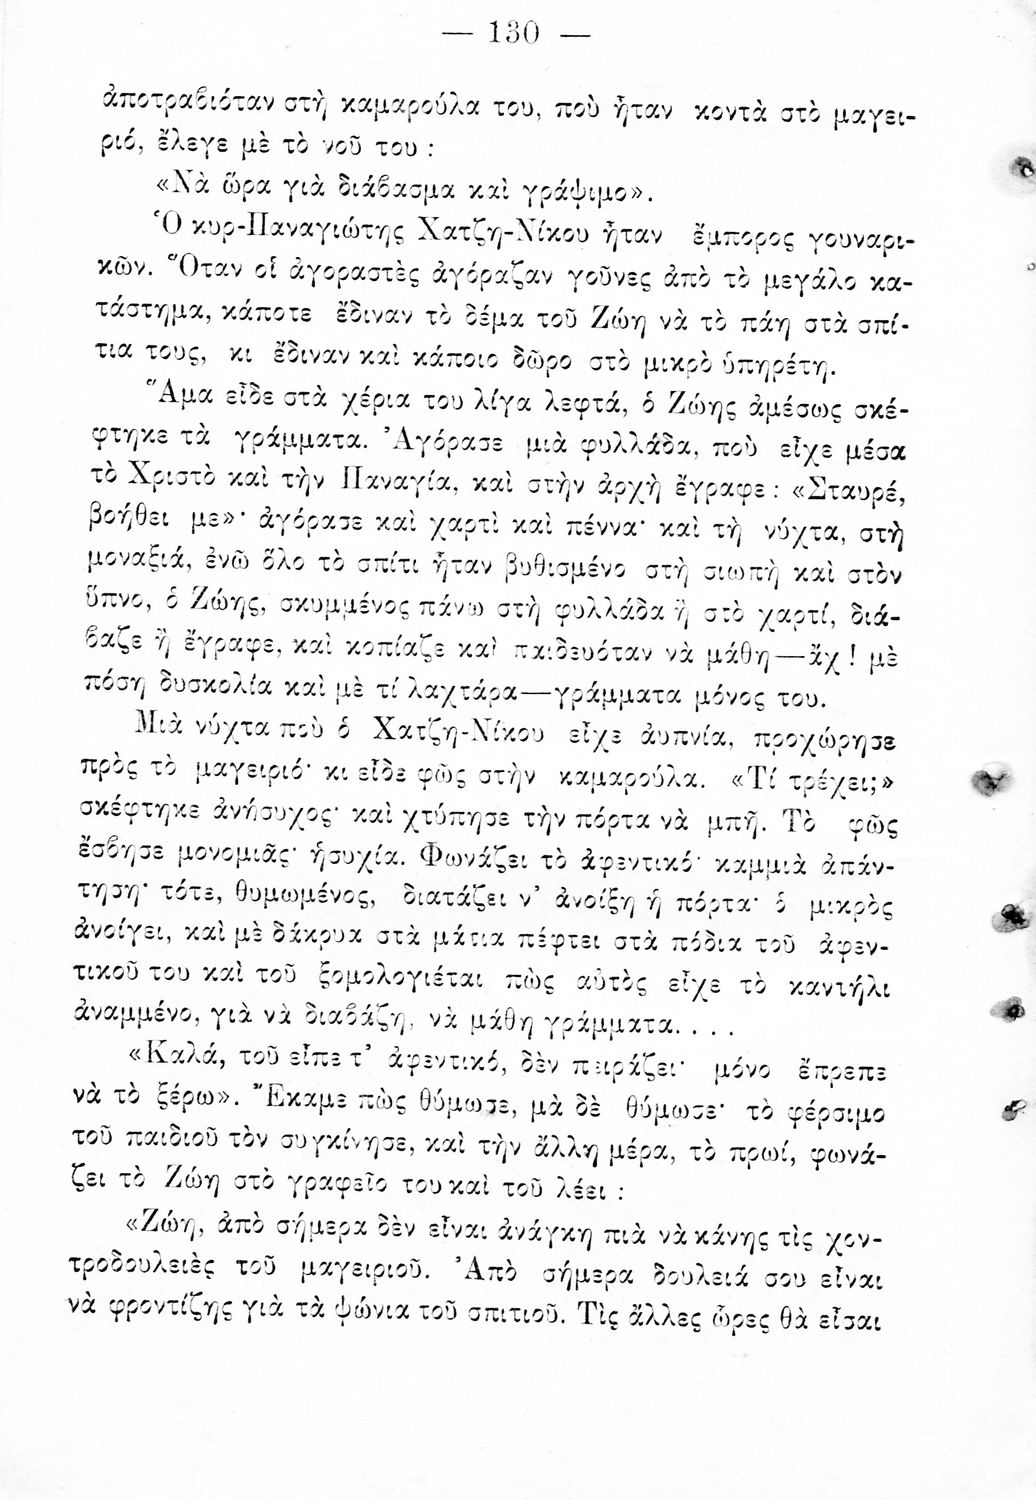 — 130 —
ἀποτραβιόταν στὴ καμαρούλα του, ποὺ ἦταν κοντὰ στὸ μαγει-
ριό, ἔλεγε μὲ τὸ νοῦ του :
«Νὰ ὥρα γιὰ διάβασμα καὶ γράψιμο».
Ὁ κυρ-Παναγιώτης Χατζη-Νίκου ἦταν ἔμπορος γουναρι-
κῶν. Ὅταν οἱ ἀγοραστὲς ἀγόραζαν γοῦνες ἀπὸ τὸ μεγάλο κα-
τάστημα, κάποτε ἔδιναν τὸ δέμα τοῦ Ζώη νὰ τὸ πάη στὰ σπί-
τια τους, κι ἔδιναν καὶ κάποιο δῶρο στὸ μικρὸ ὑπηρέτη.
Ἅμα εἶδε στὰ χέρια του λίγα λεφτά, ὁ Ζώης ἀμέσως σκέ-
φτηκε τὰ γράμματα. Ἀγόρασε μιὰ φυλλάδα, ποὺ εἶχε μέσα
τὸ Χριστὸ καὶ τὴν Παναγία, καὶ στὴν ἀρχὴ ἔγραφε : «Σταυρέ,
βοήθει με»· ἀγόρασε καὶ χαρτὶ καὶ πέννα· καὶ τὴ νύχτα, στὴ
μοναξιά, ἐνῶ ὅλο τὸ σπίτι ἦταν βυθισμένο στὴ σιωπὴ καὶ στὸν
ὕπνο, ὁ Ζώης, σκυμμένος πάνω στὴ φυλλάδα ἢ στὸ χαρτί, διά-
βαζε ἢ ἔγραφε, καὶ κοπίαζε καὶ παιδευόταν νὰ μάθη—ἄχ ! μὲ
πόση δυσκολία καὶ μὲ τί λαχτάρα—γράμματα μόνος του.
Μιὰ νύχτα ποὺ ὁ Χατζη-Νίκου εἶχε ἀυπνία, προχώρησε
πρὸς τὸ μαγειριό· κι εἶδε φῶς στὴν καμαρούλα. «Τί τρέχει;»
σκέφτηκε ἀνήσυχος· καὶ χτύπησε τὴν πόρτα νὰ μπῆ. Τὸ φῶς
ἔσβησε μονομιᾶς· ἡσυχία. Φωνάζει τὸ ἀφεντικό· καμμιὰ ἀπάν-
τηση· τότε, θυμωμένος, διατάζει ν’ ἀνοίξη ἡ πόρτα· ὁ μικρὸς
ἀνοίγει, καὶ μὲ δάκρυα στὰ μάτια πέφτει στὰ πόδια τοῦ ἀφεν-
τικοῦ του καὶ τοῦ ξομολογιέται πὼς αὐτὸς εἶχε τὸ καντήλι
ἀναμμένο, γιὰ νὰ διαβάζη, νὰ μάθη γράμματα. . . .
«Καλά, τοῦ εἶπε τ’ ἀφεντικό, δὲν πειράζει· μόνο ἔπρεπε
νὰ τὸ ξέρω». Ἔκαμε πὼς θύμωσε, μὰ δὲ θύμωσε· τὸ φέρσιμο
τοῦ παιδιοῦ τὸν συγκίνησε, καὶ τὴν ἄλλη μέρα, τὸ πρωί, φωνά-
ζει τὸ Ζώη στὸ γραφεῖο του καὶ τοῦ λέει :
«Ζώη, ἀπὸ σήμερα δὲν εἶναι ἀνάγκη πιὰ νὰ κάνης τὶς χον-
τροδουλειὲς τοῦ μαγειριοῦ. Ἀπὸ σήμερα δουλειά σου εἶναι
νὰ φροντίζης γιὰ τὰ ψώνια τοῦ σπιτιοῦ. Τὶς ἄλλες ὧρες θὰ εἶσαι